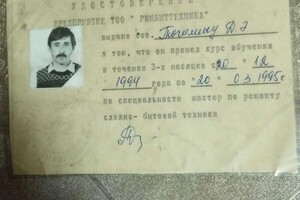 УДОСТОВЕРЕНИЕ
ПРЕДПРИЯТИЕ ТОО " РЕМБЫТТЕХНИКА"
выдано тов. Точилину
в том, что он прошел курс обучения
в течении 3-х месяцев с "20 " 12
1994 года по "20" 03.1995г.
по специальности мастер по ремонту
сложно- бытовой техники